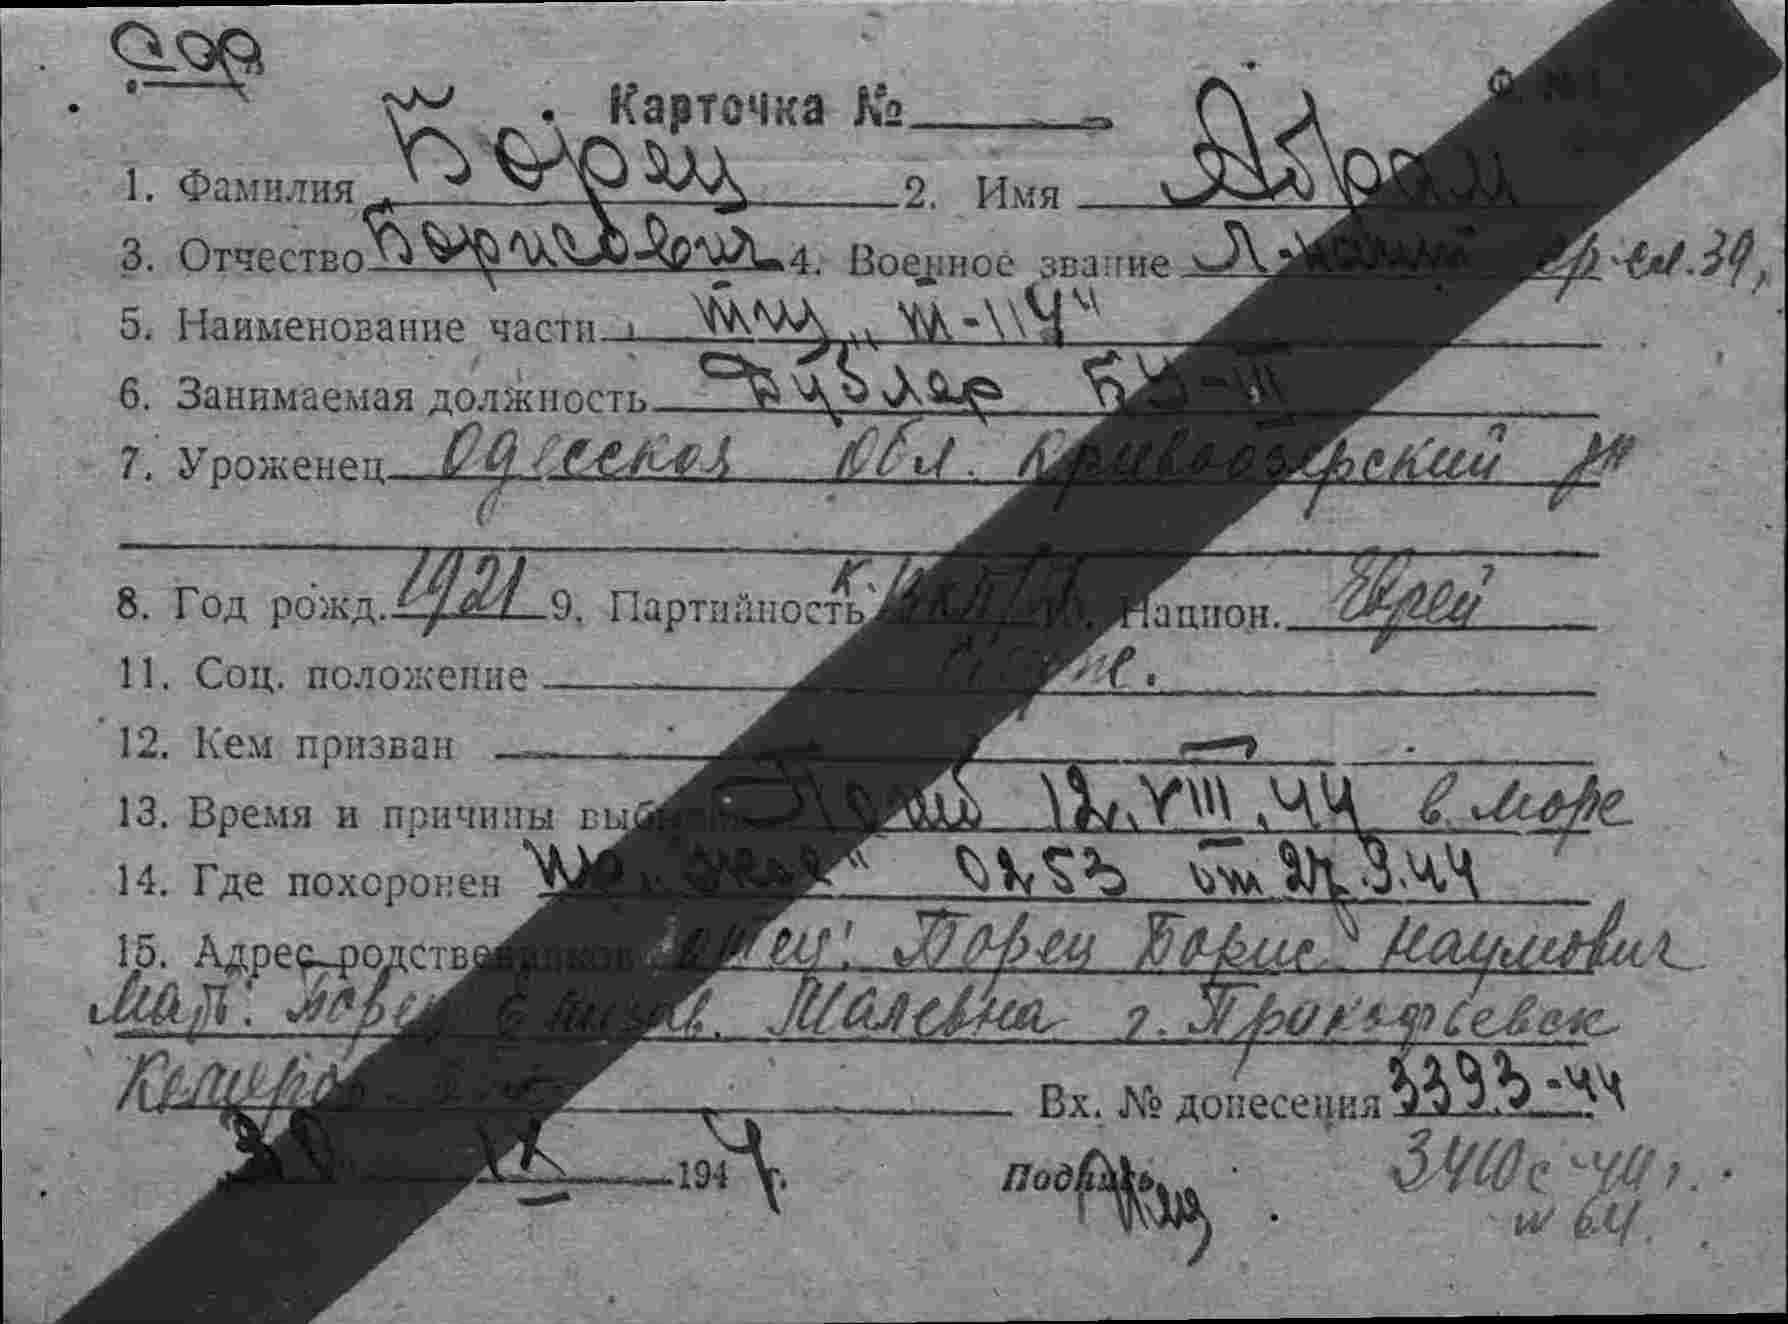 Карточка №
1. Фамилия Борец 2. Имя Абрам
3. Отчество Борисович 4. Военное звание ср. сл. 39,
5. Наименование части тщ „Т-114"
6. Занимаемая должность Дублер БЧ-III
7. Уроженец Одесская обл. Кривоозерский рн
8. Год рожд. 1921 9. Партийность к. ВКП/б Национ. Еврей
11. Соц. положение
12. Кем призван —
13. Время и причины Погиб 12.VIII.44 в море
14. Где похоронен 0253 от 27.9.44
15. Адрес родственников отец: Борец Борис Наумович
Мать: Борец Елизав. г. Прокофьевск
Кемеров.
Вх. № донесения 3393-44
30 IX 1944 г. Подпись